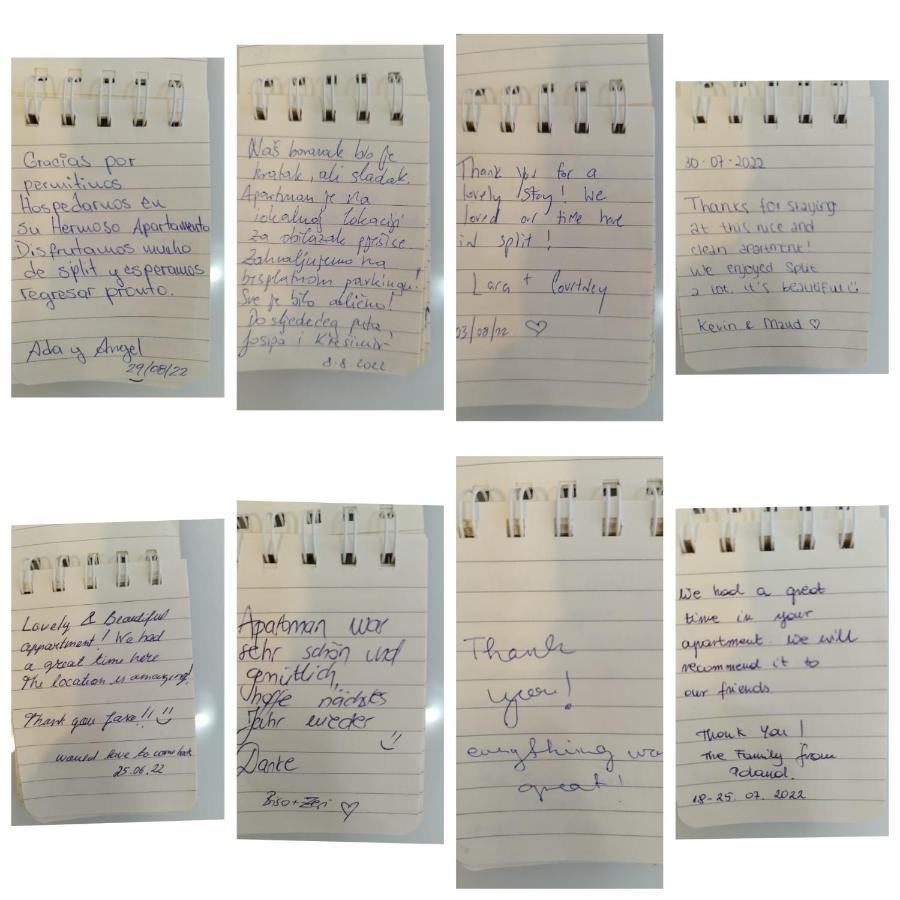 Gracias por
permitirnos
Hospedarnos en
su Hermoso Apartamento
Disfrutamos mucho
de split y esperamos
regresar pronto.
Ada y Angel
29/08/22
Naš boravak bio je
kratak, ali sladak.
Apartman je na
lokaciji
za obilazak pješice.
Zahvaljujemo na
besplatnom parkingu!
Sve je bilo odlično!
Do sljedećeg puta,
Josipa i Krešimir
8.8.2022
Thank you for a
lovely stay! We
loved our time here
in split!
Lara + Courtney
03/08/22 ♡
30-07-2022
Thanks for staying
at this nice and
clean apartment!
We enjoyed Split
a lot. it's beautiful ☺
Kevin & Maud ♡
Lovely & Beautiful
appartment! We had
a great time here
The location is amazing!
Thank you !!
would love to come back
25.06.22
Apartman war
sehr schön und
gemütlich,
hoffe nächstes
Jahr wieder
Danke
Biso + Zeri ♡
Thank
you!
everything wa
great!
We had a great
time in your
apartment. We will
recommend it to
our friends
Thank You!
The Family from
18-25.07.2022